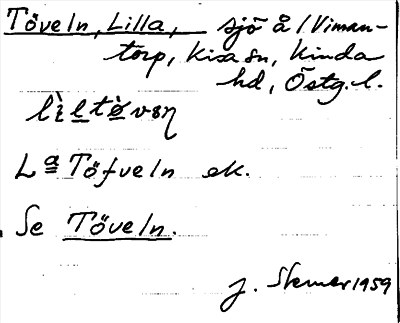 Töveln, Lilla, sjö å 1 Viman-
torp, Kisa sn, Kinda
hd, Östg. l.
lìltøvəη
Lª Töfveln ek.
Se Töveln.
J. Sterner 1959